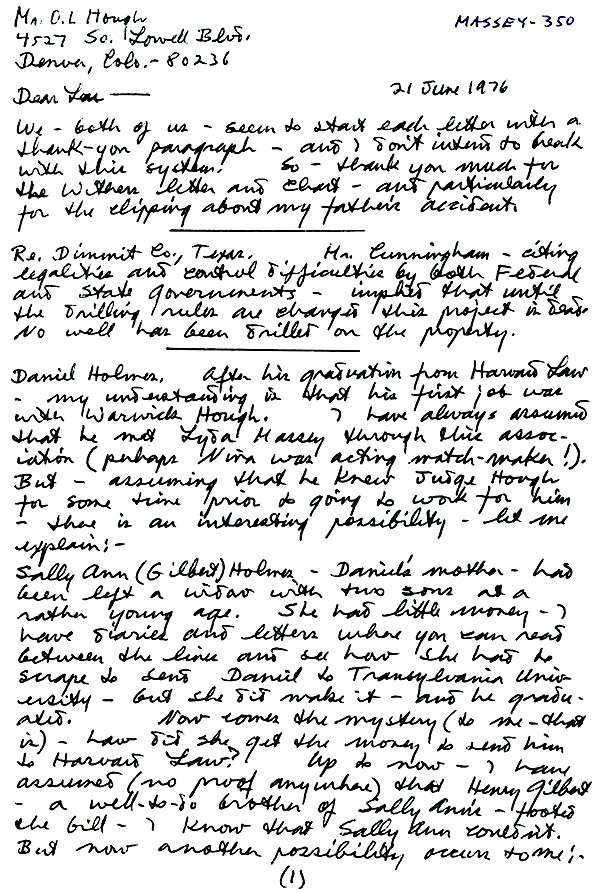 Mr. O.L Hough
MASSEY-350
4527 So. Lowell Blvd.
Denver, Colo. - 80236
Dear Lou —
21 June 1976
We - both of us - seem to start each letter with a
thank-you paragraph - and I don't intend to break
with this system! So - thank you much for
the Withers letter and chart - and particularly
for the clipping about my father's accident.
Re. Dimmit Co., Texas. Mr. Cunningham - citing
legalities and control difficulties by both Federal
and State governments - implied that until
the drilling rules are changed this project is dead.
No well has been drilled on the property.
Daniel Holmes. After his graduation from Harvard Law
- my understanding is that his first job was
with Warwick Hough. I have always assumed
that he met Lyda Massey through this assoc-
iation (perhaps Nina was acting match-maker!).
But - assuming that he knew Judge Hough
for some time prior to going to work for him
- there is an interesting possibility - let me
explain:-
Sally Ann (Gilbert) Holmes - Daniel's mother - had
been left a widow with two sons at a
rather young age. She had little money - I
have diaries and letters where you can read
between the lines and see how she had to
scrape to send Daniel to Transylvania Univ-
ersity - but she did make it - and he gradu-
ated. Now comes the mystery (to me - that
is) - how did she get the money to send him
to Harvard Law? Up to now - I have
assumed (no proof anywhere) that Henry Gilbert
- a well-to-do brother of Sally Ann's - footed
the bill - I know that Sally Ann couldn't.
But now another possibility occurs to me:-
(1)